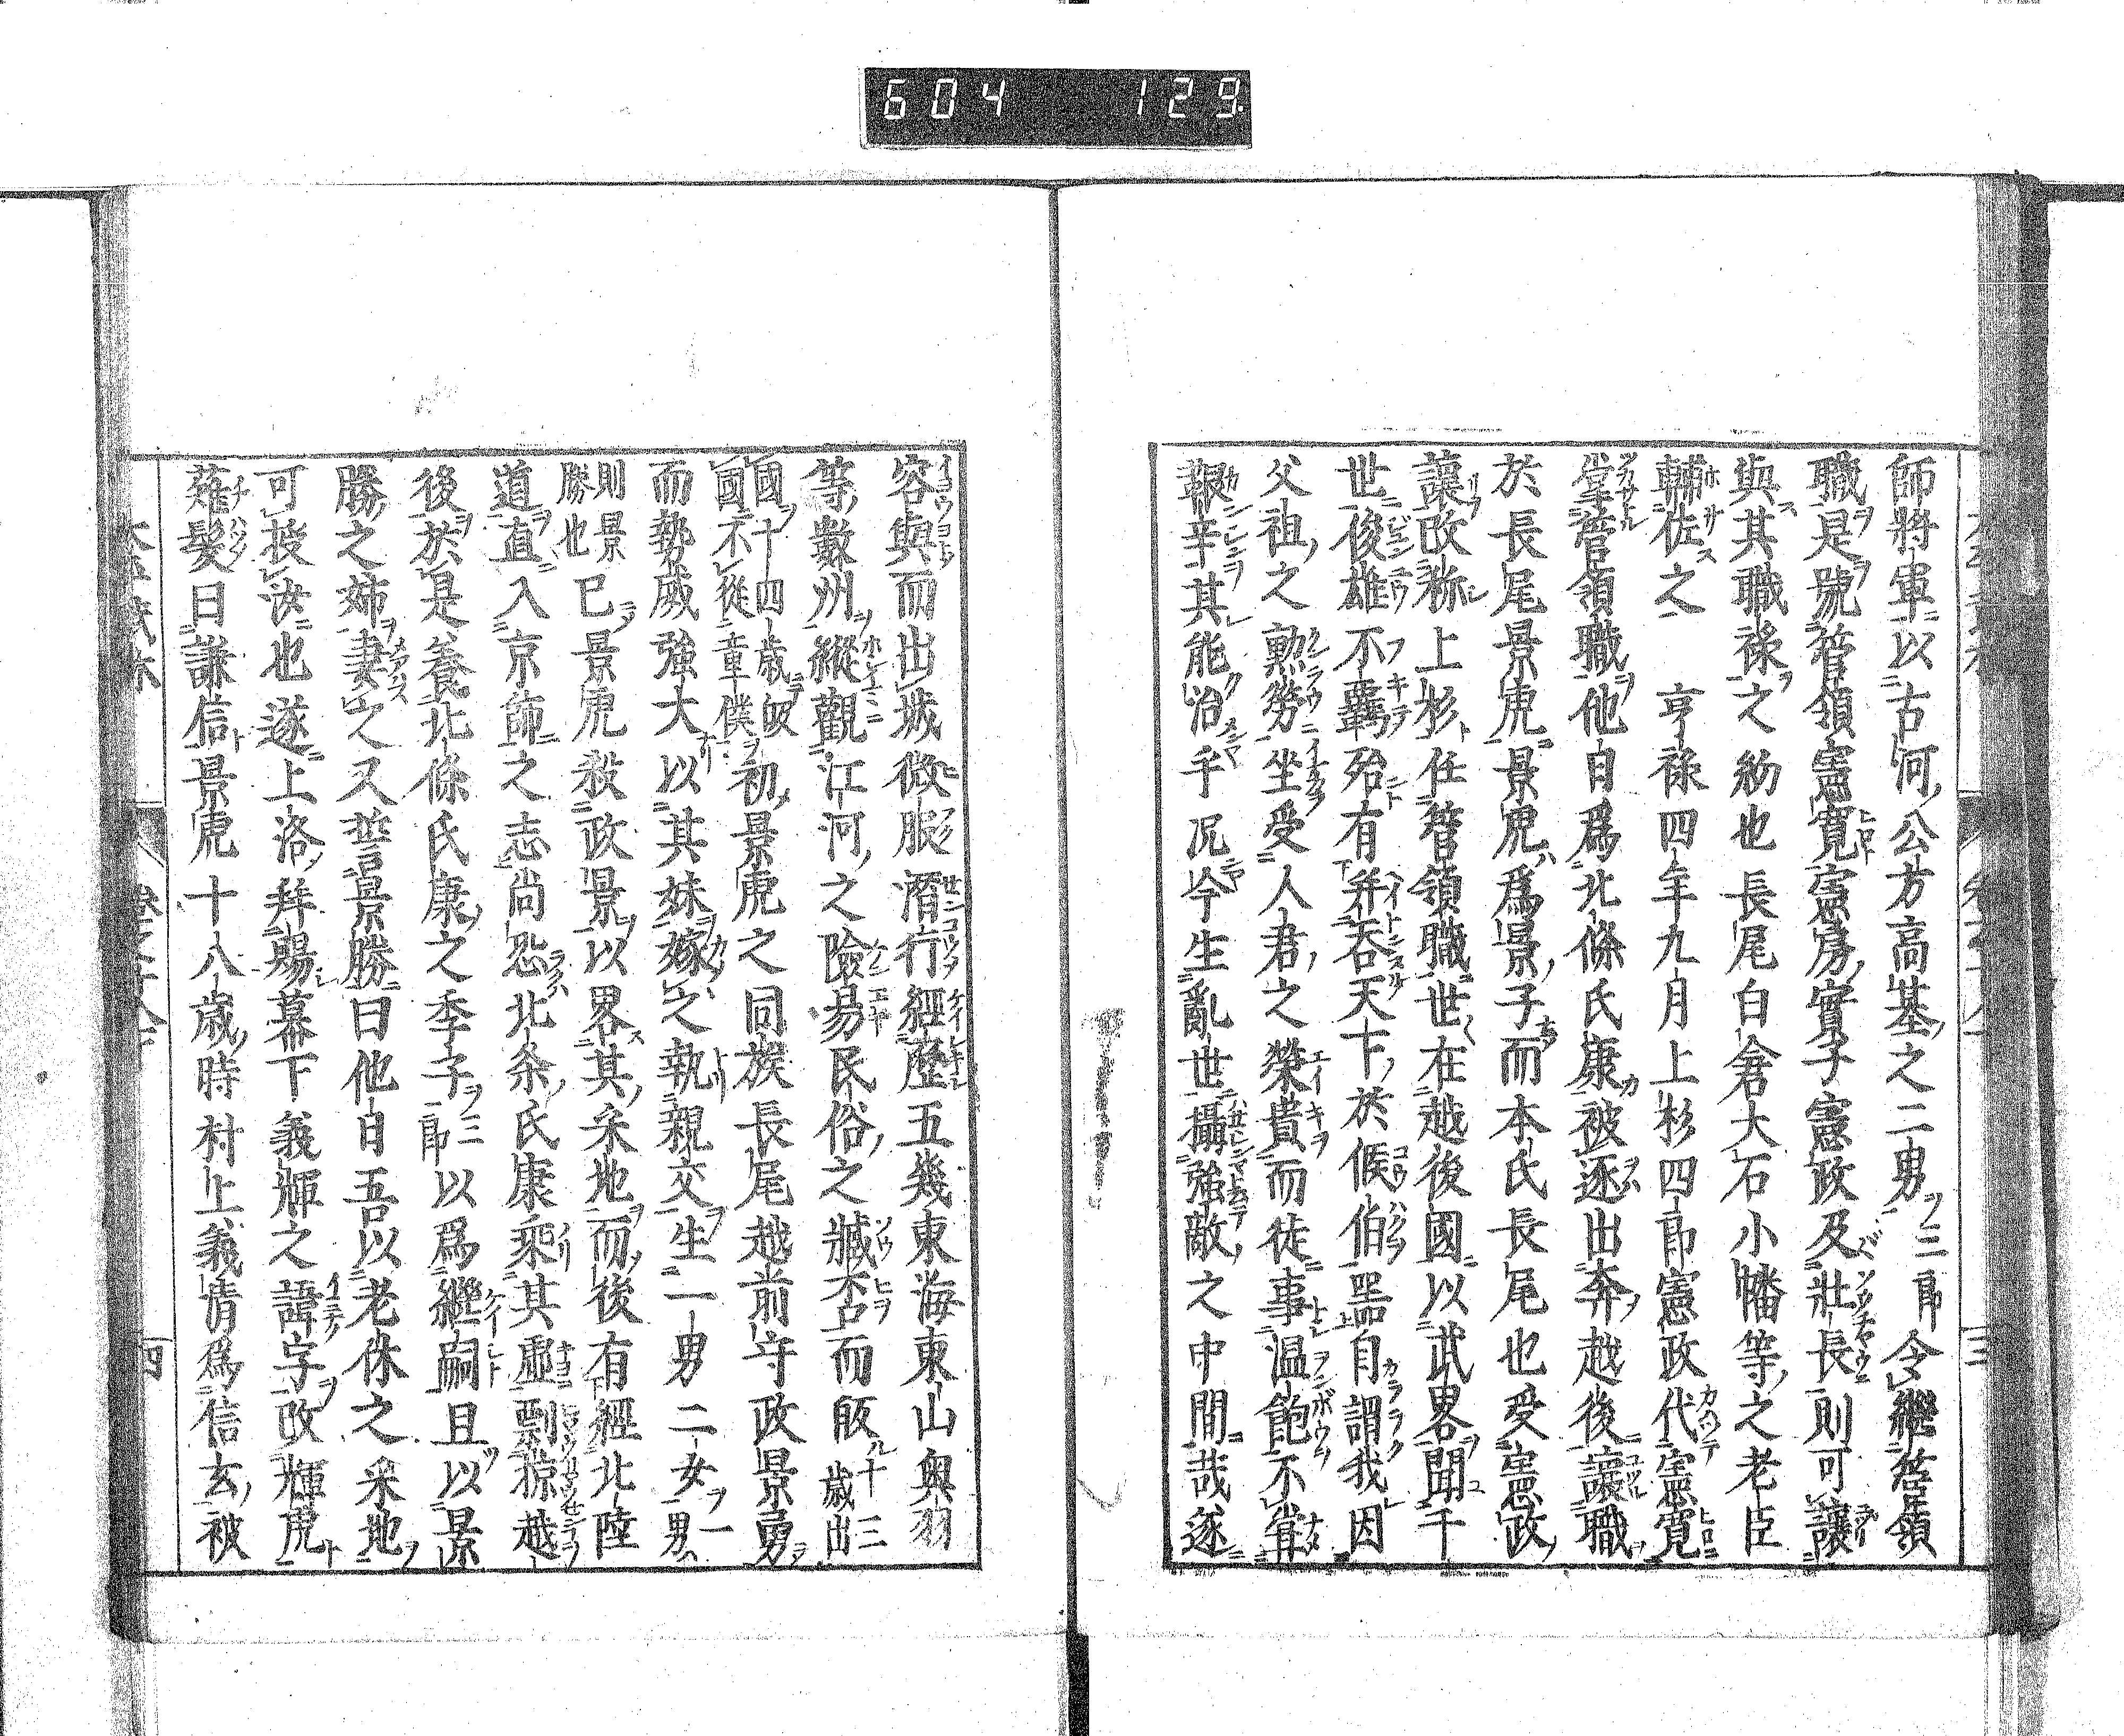 604 129
師將軍以古河公方高基之二男三郎令繼管領
職是號管領憲寛憲房實子憲政及壯長則可讓
與其職祿之約也長尾白倉大石小幡等之老臣
輔佐之 亨祿四年九月上杉四郎憲政代憲寛
掌管領職他日爲北條氏康被逐出奔越後讓職
於長尾景虎景虎爲景子而本氏長尾也受憲政
讓改称上杉任管領職世在越後國以武畧聞于
世俊雄不羈殆有并吞天下於候伯噐自謂我因
父祖之勲労坐受人君之榮貴而徒事温飽不甞
艱辛其能治乎況今生亂世攝強敵之中間哉遂
容與而出城微服潛行經歴五幾東海東山奥羽
等數州縱觀江河之險易民俗之臧否而皈十三歳出
國十四歳皈國不從童僕初景虎之同族長尾越前守政景勇
而勢威強大以其妹嫁之執親交生一男二女一男
則景勝也已景虎殺政景以畧其釆地而後有經北陸
道直入京師之志尚恐北条氏康乘其虚剽掠越
後於是養北條氏康之季子三郎以爲繼嗣且以景
勝之姉妻之又誓景勝曰他日吾以老休之釆地
可授汝也遂上洛拜賜幕下義輝之諱字改輝虎
薙髮曰謙信景虎十八歳時村上義清爲信玄被